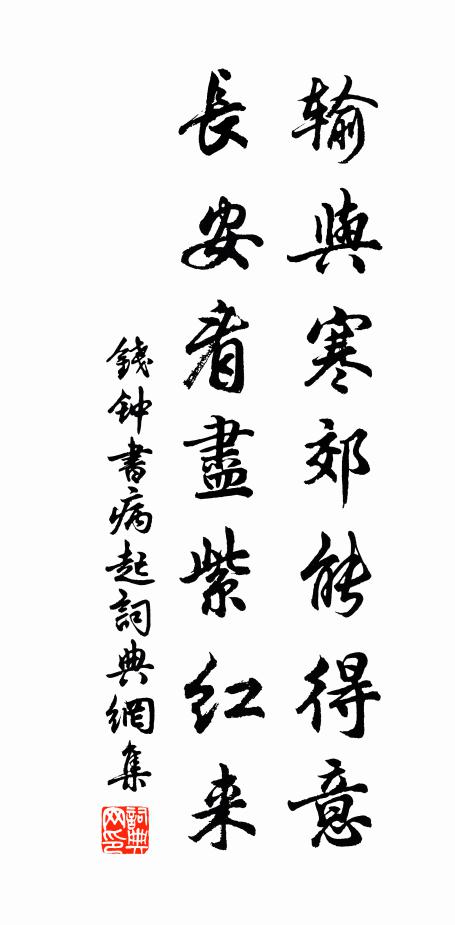 輸與寒郊能得意
長安看盡紫紅来
錢鈡書病起詞典網集
詞典網印